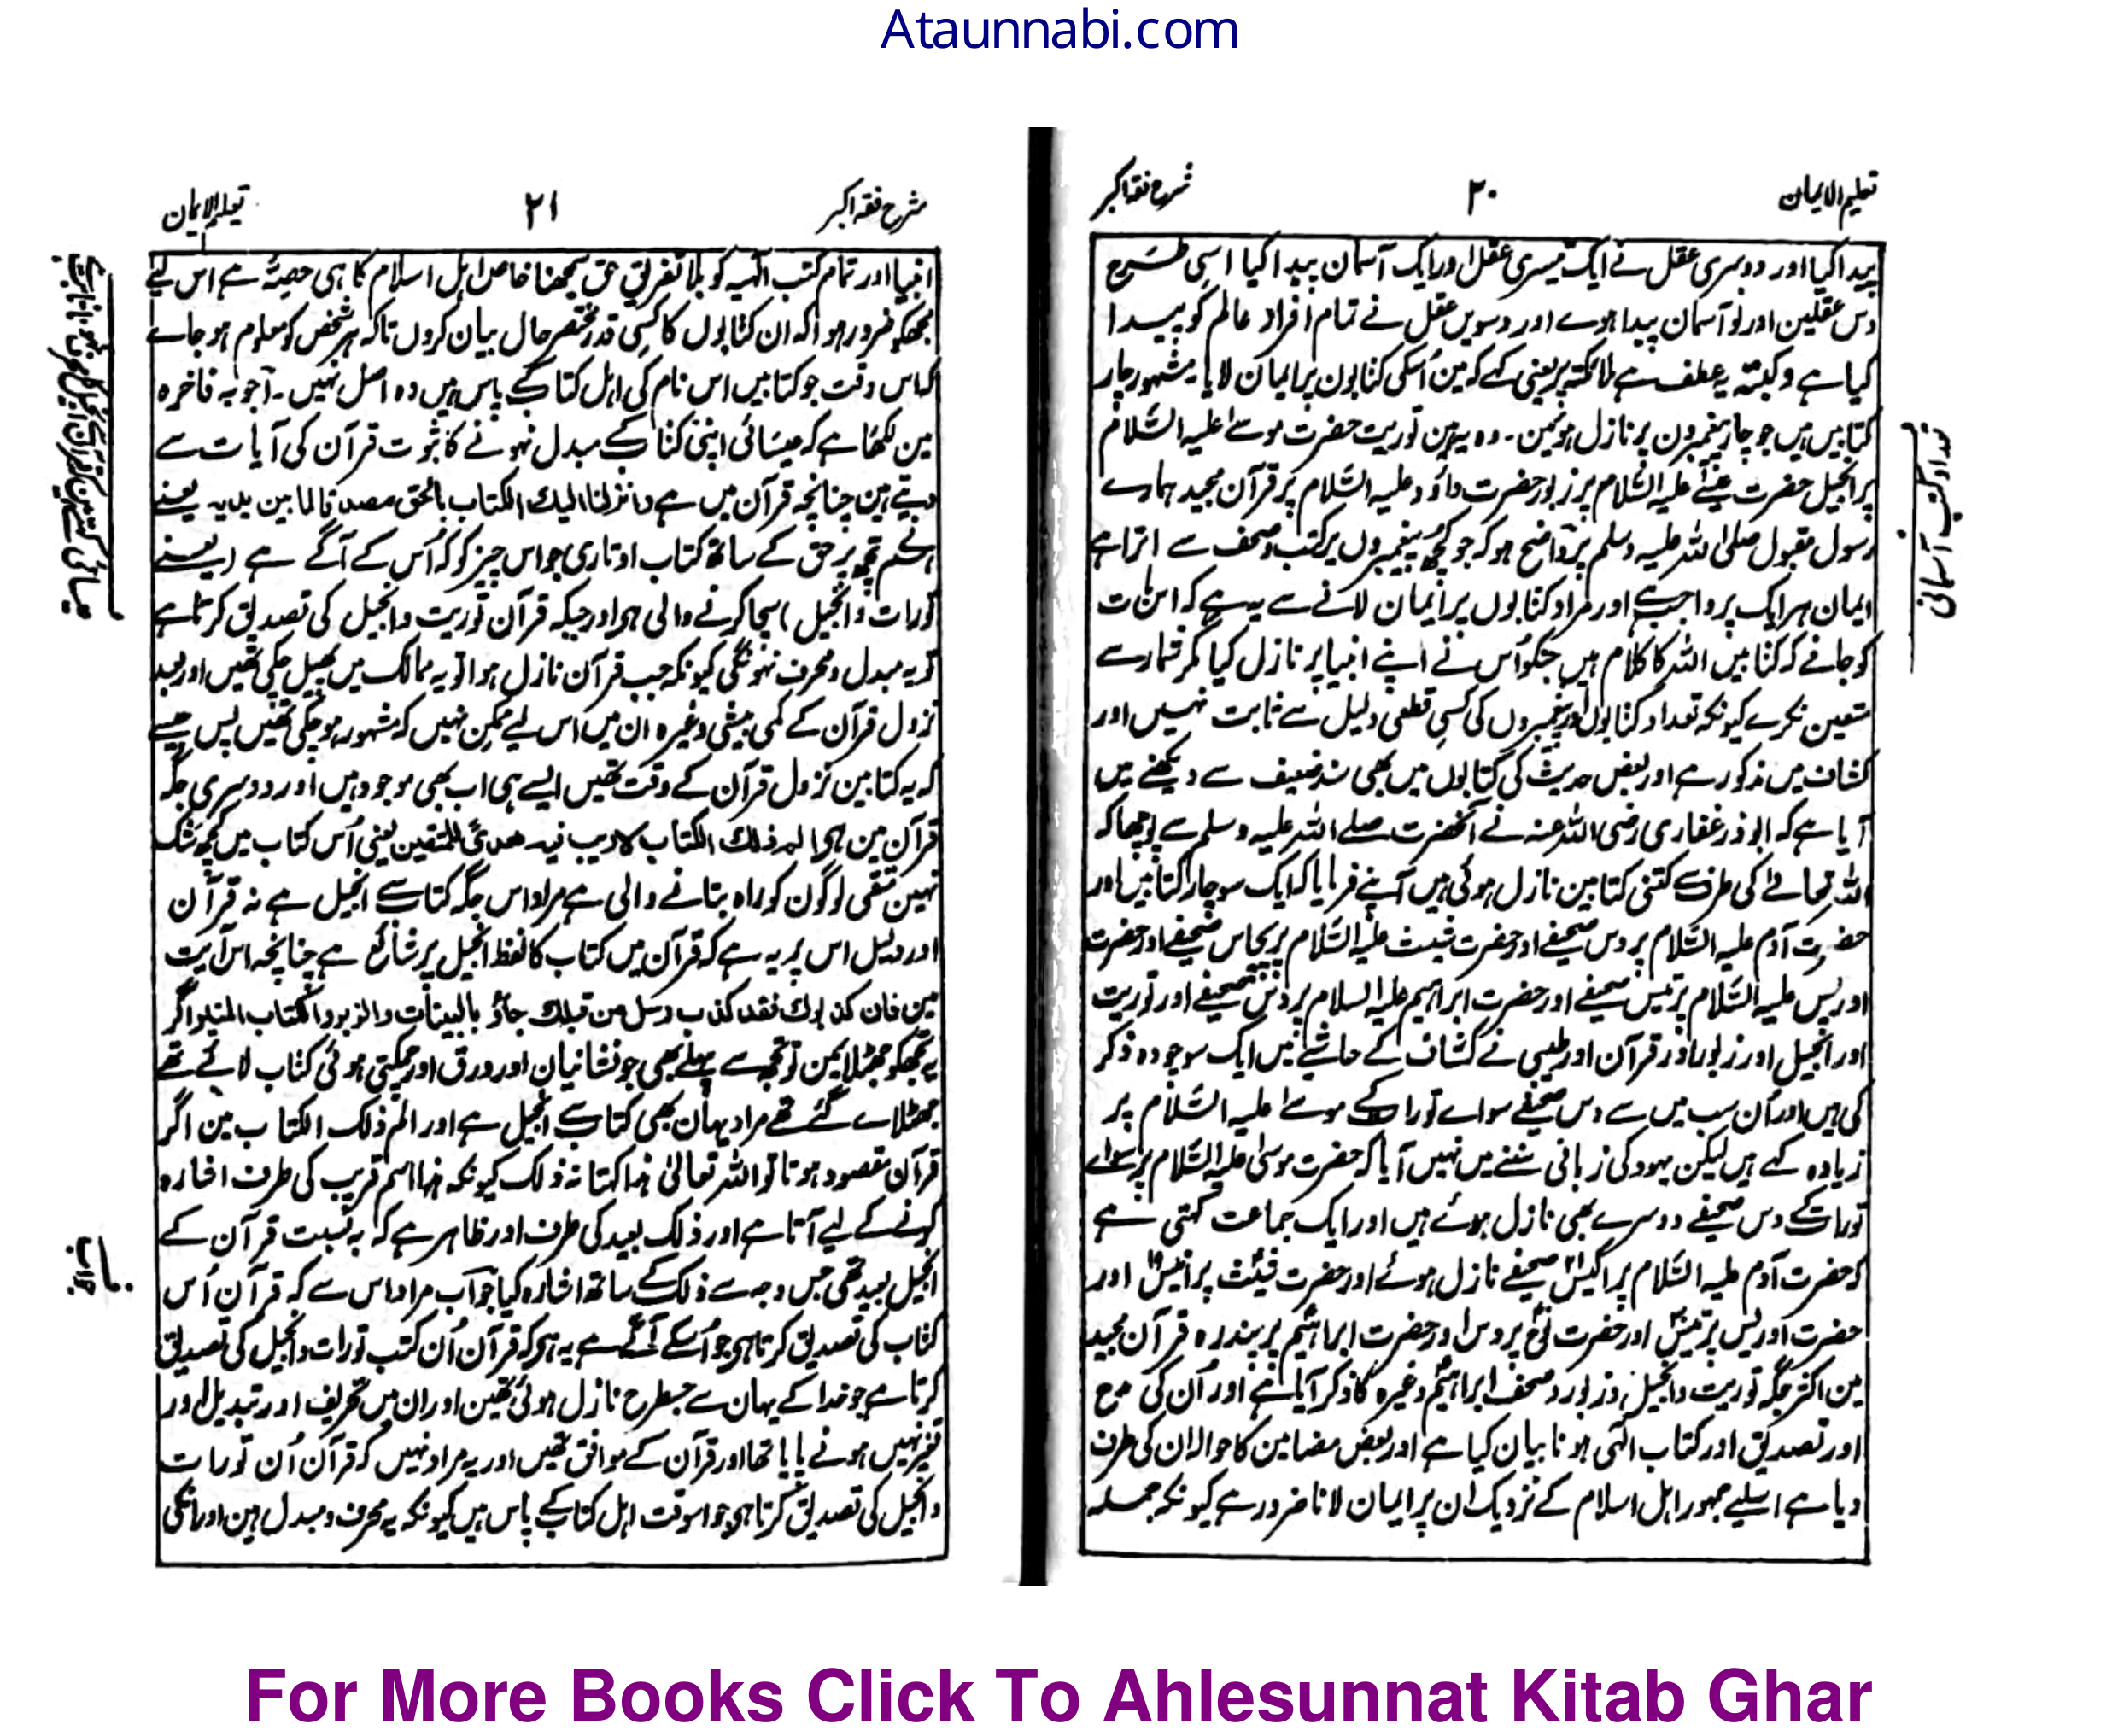 Ataunnabi.com
تعلیم الایمان
۲۰
شرح فقہ اکبر
پیدا کیا اور دوسری عقل نے ایک تیسری عقل اور ایک آسمان پیدا کیا اسی طرح
دس عقلین اور نو آسمان پیدا ہوے اور دسویں عقل نے تمام افراد عالم کو پیدا
کیا ہے وکتبہ یہ عطف ہے ملائکتہ پر یعنی کہے کہ مین اُسکی کتابون پر ایمان لایا مشہور چار
کتابیں ہیں جو چار پیغمبرون پر نازل ہوئیں۔ وہ یہ ہین توریت حضرت موسےٰ علیہ السّلام
پر انجیل حضرت عیسےٰ علیہ السّلام پر زبور حضرت داؤد علیہ السّلام پر قرآن مجید ہمارے
رسول مقبول صلی اللہ علیہ وسلم پر واضح ہو کہ جو کچھ پیغمبروں پر کتب وصحف سے اترا ہے
ایمان ہر ایک پر واجب ہے اور مراد کتابوں پر ایمان لانے سے یہ ہے کہ اس بات
کو جانے کہ کتابیں اللہ کا کلام ہیں جنکو اُس نے اپنے انبیا پر نازل کیا مگر شمار سے
متعین نکرے کیونکہ تعداد کتابوں اور پیغمبروں کی کسی قطعی دلیل سے ثابت نہیں اور
کشاف میں مذکور ہے اور بعض حدیث کی کتابوں میں بھی سند ضعیف سے دیکھنے میں
آیا ہے کہ ابوذر غفاری رضی اللہ عنہ نے آنحضرت صلے اللہ علیہ وسلم سے پوچھا کہ
اللہ تعالےٰ کی طرف سے کتنی کتابین نازل ہوئی ہیں آپنے فرمایا کہ ایک سو چار کتابیں اور
حضرت آدم علیہ السّلام پر دس صحیفے اور حضرت شیث علیہ السّلام پر پچاس صحیفے اور حضرت
ادریس علیہ السّلام پر تیس صحیفے اور حضرت ابراہیم علیہ السلام پر دس صحیفے اور توریت
اور انجیل اور زبور اور قرآن اور طیبی نے کشاف کے حاشیے میں ایک سو چودہ ذکر
کی ہیں اور اُن سب میں سے دس صحیفے سواے تورات کے موسےٰ علیہ السّلام پر
زیادہ کہے ہیں لیکن یہود کی زبانی سننے میں نہیں آیا کہ حضرت موسیٰ علیہ السّلام پر سواے
تورات کے دس صحیفے دوسرے بھی نازل ہوئے ہیں اور ایک جماعت کہتی ہے
کہ حضرت آدم علیہ السّلام پر اکیس۲۱ صحیفے نازل ہوئے اور حضرت شیث پر انتیس اور
حضرت ادریس پر تیس اور حضرت نوح پر دس اور حضرت ابراہیم پر پندرہ قرآن مجید
مین اکثر جگہ توریت وانجیل وزبور وصحف ابراہیم وغیرہ کا ذکر آیا ہے اور اُن کی مدح
اور تصدیق اور کتاب الٰہی ہونا بیان کیا ہے اور بعض مضامین کا حوالہ ان کی طرف
دیا ہے اسلیے جمہور اہل اسلام کے نزدیک ان پر ایمان لانا ضرور ہے کیونکہ جملہ
تعداد کتب آسمانی
شرح فقہ اکبر
۲۱
تعلیم الایمان
انبیا اور تمام کتب الٰہیہ کو بلا تفریق حق سمجھنا خاص اہل اسلام کا ہی حصہ ہے اس لیے
مجھکو ضرور ہوا کہ ان کتابوں کا کسی قدر مختصر حال بیان کروں تاکہ ہر شخص کو معلوم ہو جاے
کہ اس وقت جو کتابیں اس نام کی اہل کتاب کے پاس ہیں وہ اصل نہیں۔ اجوبہ فاخرہ
مین لکھا ہے کہ عیسائی اپنی کتاب کے مبدل نہونے کا ثبوت قرآن کی آیات سے
دیتے ہین چنانچہ قرآن میں ہے وانزلنا الیك الکتاب بالحق مصدقا لما بین یدیہ یعنے
ہم نے تجھ پر حق کے ساتھ کتاب اوتاری جو اس چیز کو کہ اُس کے آگے ہے (یعنے
تورات وانجیل) سچا کرنے والی ہو اور جبکہ قرآن توریت وانجیل کی تصدیق کرتا ہے
تو یہ مبدل ومحرف نہونگی کیونکہ جب قرآن نازل ہوا تو یہ ممالک میں پھیل چکی تھیں اور بعد
نزول قرآن کے کمی بیشی وغیرہ ان میں اس لیے ممکن نہیں کہ مشہور ہو چکی تھیں پس جیسے
کہ یہ کتابین نزول قرآن کے وقت تھیں ایسے ہی اب بھی موجود ہیں اور دوسری جگہ
قرآن مین ہی الم ذلك الکتاب لاریب فیہ ھدیً للمتقین یعنی اُس کتاب میں کچھ شک
نہین متقی لوگون کو راہ بتانے والی ہے مراد اس جگہ کتاب سے انجیل ہے نہ قرآن
اور دلیل اس پر یہ ہے کہ قرآن میں کتاب کا لفظ انجیل پر شائع ہے چنانچہ اس آیت
مین فان کذبوك فقد کذب رسل من قبلك جاؤ بالبینات والزبر والکتاب المنیر اگر
یہ تجھکو جھٹلایئن تو تجھ سے پہلے بھی جو نشانیان اور ورق اور چمکتی ہوئی کتاب لائے تھے
جھٹلاے گئے تھے مراد یہاں بھی کتاب سے انجیل ہے اور الم ذلک الکتاب مین اگر
قرآن مقصود ہوتا تو اللہ تعالیٰ ہذا کہتا نہ ذلک کیونکہ ہذا اسم قریب کی طرف اشارہ
کرنے کے لیے آتا ہے اور ذلک بعید کی طرف اور ظاہر ہے کہ بہ نسبت قرآن کے
انجیل بعید تھی جس وجہ سے ذلک کے ساتھ اشارہ کیا جواب مراد اس سے کہ قرآن اُس
کتاب کی تصدیق کرتا ہی جو اُسکے آگے ہے یہ ہی کہ قرآن اُن کتب تورات وانجیل کی تصدیق
کرتا ہے جو خدا کے یہان سے جسطرح نازل ہوئی تھین اور ان میں تحریف اور تبدیل اور
تغیر نہیں ہونے پایا تھا اور قرآن کے موافق تھیں اور یہ مراد نہیں کہ قرآن اُن تورات
وانجیل کی تصدیق کرتا ہی جو اسوقت اہل کتاب کے پاس ہیں کیونکہ یہ محرف ومبدل ہین اور انکی
جواب
For More Books Click To Ahlesunnat Kitab Ghar